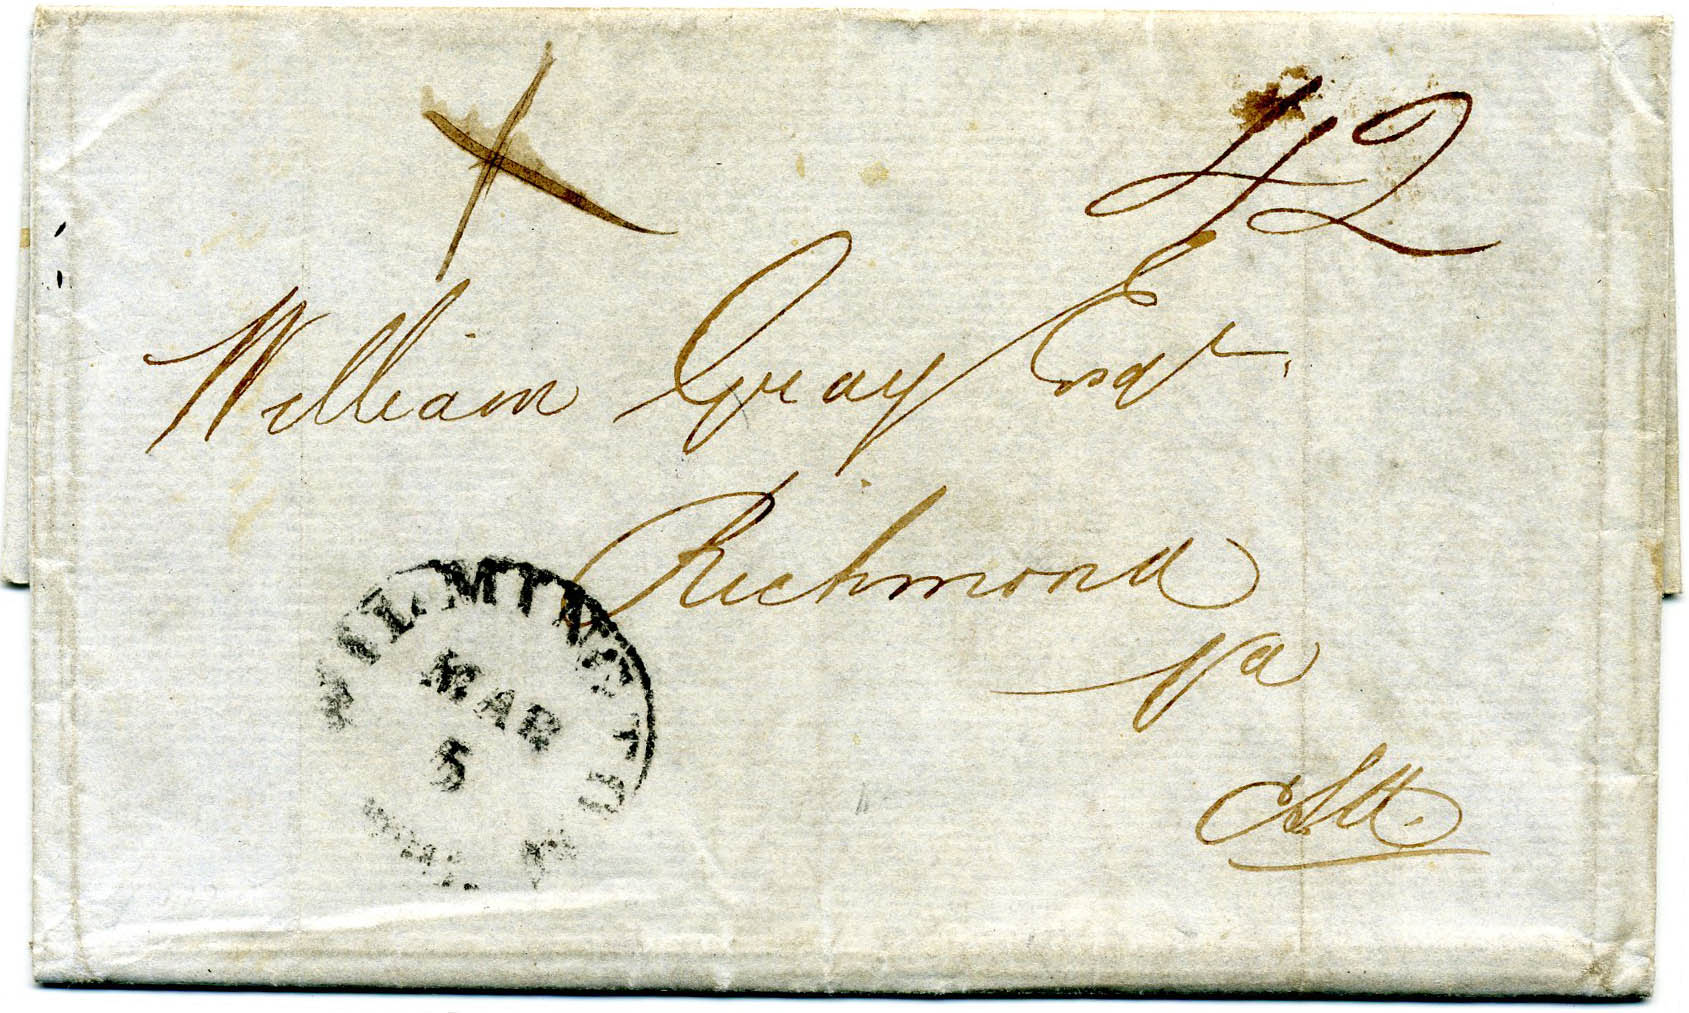 42
William Gray Esqr.
Richmond
Va
WILMINGTON
MAR
5